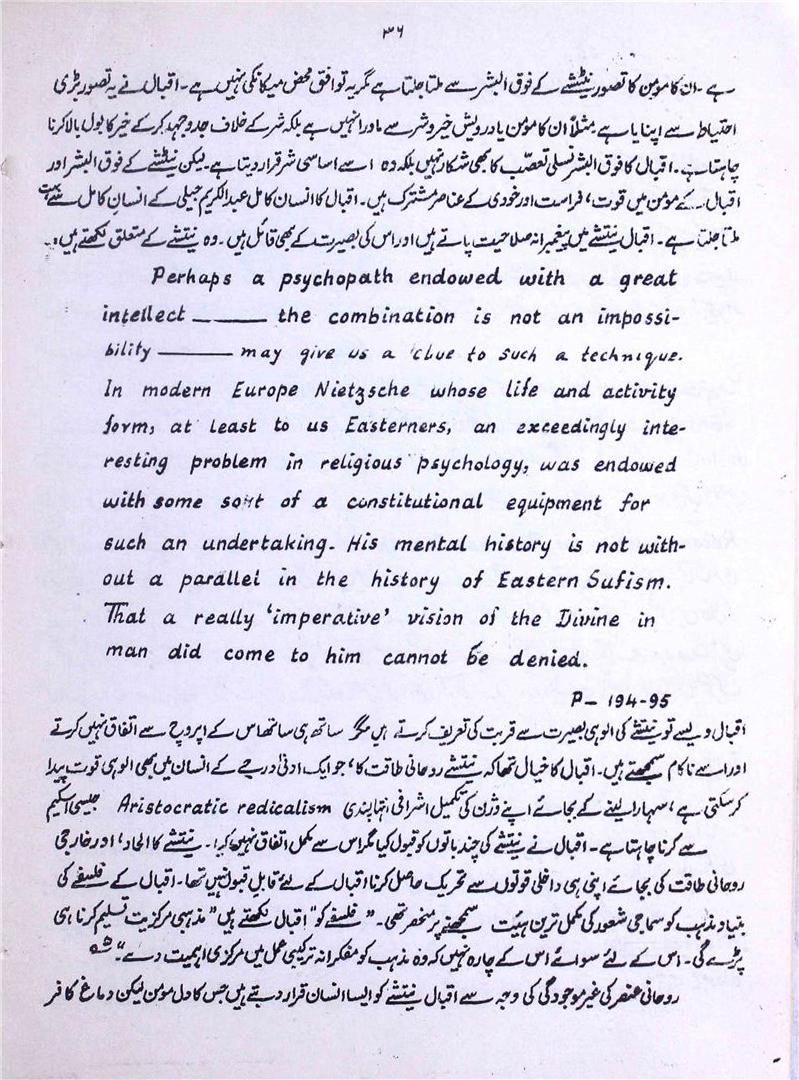 ۳۶
ہے۔ ان کا مومن کا تصور نیٹشے کے فوق البشر سے ملتا جلتا ہے مگر یہ توافق محض میکانکی نہیں ہے۔ اقبال نے یہ تصور بڑی
احتیاط سے اپنایا ہے مثلاً ان کا مومن یا درویش خیر و شر سے ماورا نہیں ہے بلکہ شر کے خلاف جدوجہد کر کے خیر کا بول بالا کرنا
چاہتا ہے۔ اقبال کا فوق البشر نسلی تعصّب کا بھی شکار نہیں بلکہ وہ اسے اساسی شر قرار دیتا ہے۔ لیکن نیٹشے کے فوق البشر اور
اقبال کے مومن میں قوت، فراست اور خودی کے عناصر مشترک ہیں۔ اقبال کا انسان کامل عبدالکریم جیلی کے انسانِ کامل سے بہت
ملتا جلتا ہے۔ اقبال نیٹشے میں پیغمبرانہ صلاحیت پاتے ہیں اور اس کی بصیرت کے بھی قائل ہیں۔ وہ نیٹشے کے متعلق لکھتے ہیں:۔
Perhaps a psychopath endowed with a great
intellect ——— the combination is not an impossi-
bility ——— may give us a clue to such a technique.
In modern Europe Nietzsche whose life and activity
form, at least to us Easterners, an exceedingly inte-
resting problem in religious psychology, was endowed
with some sort of a constitutional equipment for
such an undertaking. His mental history is not with-
out a parallel in the history of Eastern Sufism.
That a really 'imperative' vision of the Divine in
man did come to him cannot be denied.
P – 194-95
اقبال ویسے تو نیٹشے کی الوہی بصیرت سے قربت کی تعریف کرتے ہیں مگر ساتھ ہی ساتھ اس کے اپروچ سے اتفاق نہیں کرتے
اور اسے ناکام سمجھتے ہیں۔ اقبال کا خیال تھا کہ نیٹشے روحانی طاقت کا، جو ایک ادنیٰ درجے کے انسان میں بھی الوہی قوت پیدا
کر سکتی ہے، سہارا لینے کے بجائے اپنے وژن کی تکمیل اشرافی انتہا پسندی Aristocratic redicalism جیسی اسکیم
سے کرنا چاہتا ہے۔ اقبال نے نیٹشے کی چند باتوں کو قبول کیا مگر اس سے مکمل اتفاق نہیں کیا۔ نیٹشے کا الحاد، اور خارجی
روحانی طاقت کی بجائے اپنی ہی داخلی قوتوں سے تحریک حاصل کرنا اقبال کے لئے قابلِ قبول نہیں تھا۔ اقبال کے فلسفے کی
بنیاد مذہب کو سماجی شعور کی مکمل ترین ہیئت سمجھنے پر منحصر تھی۔ "فلسفے کو" اقبال لکھتے ہیں "مذہبی مرکزیت تسلیم کرنا ہی
پڑے گی۔ اس کے لئے سوائے اس کے چارہ نہیں کہ وہ مذہب کو مفکرانہ ترکیبی عمل میں مرکزی اہمیت دے"۔
روحانی عنصر کی غیر موجودگی کی وجہ سے اقبال نیٹشے کو ایسا انسان قرار دیتے ہیں جس کا دل مومن لیکن دماغ کافر